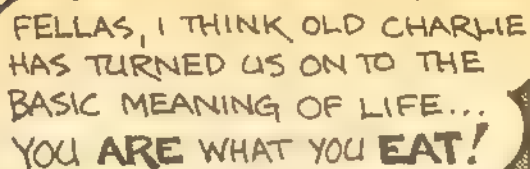 FELLAS, I THINK OLD CHARLIE
HAS TURNED US ON TO THE
BASIC MEANING OF LIFE...
YOU ARE WHAT YOU EAT!